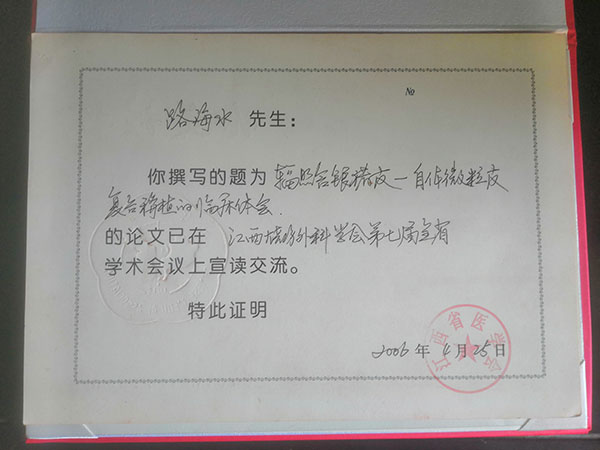 №
路海水 先生：
你撰写的题为 辐照含银猪皮一自体微粒皮
复合移植的临床体会.
的论文已在 江西烧伤外科学会第七届全省
学术会议上宣读交流。
特此证明
江西省医学会
2006 年 4 月 25 日